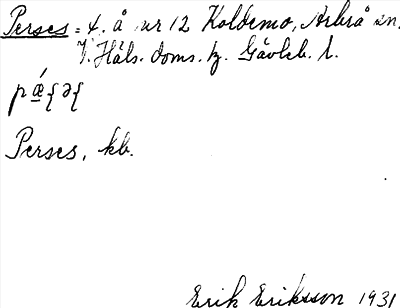 Perses = 4. å nr 12 Koldemo, Arbrå sn.
V. Häls. doms. hz. Gävleb. l.
Perses, kb.
Erik Eriksson 1931